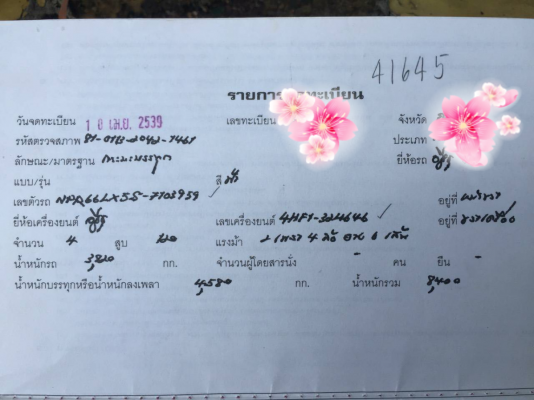 41645
รายการจดทะเบียน
วันจดทะเบียน 10 เม.ย. 2539 เลขทะเบียน จังหวัด
รหัสตรวจสภาพ ประเภท
ลักษณะ/มาตรฐาน กระบะบรรทุก ยี่ห้อรถ อีซูซุ
แบบ/รุ่น สี ฟ้า
เลขตัวรถ NPR66LX55-7103959 อยู่ที่ หน้าขวา
ยี่ห้อเครื่องยนต์ อีซูซุ เลขเครื่องยนต์ 4HF1-324646 อยู่ที่
จำนวน 4 สูบ 120 แรงม้า 2 เพลา 4 ล้อ ยาง 6 เส้น
น้ำหนักรถ 3,820 กก. จำนวนผู้โดยสารนั่ง - คน ยืน -
น้ำหนักบรรทุกหรือน้ำหนักลงเพลา 4,580 กก. น้ำหนักรวม 8,400